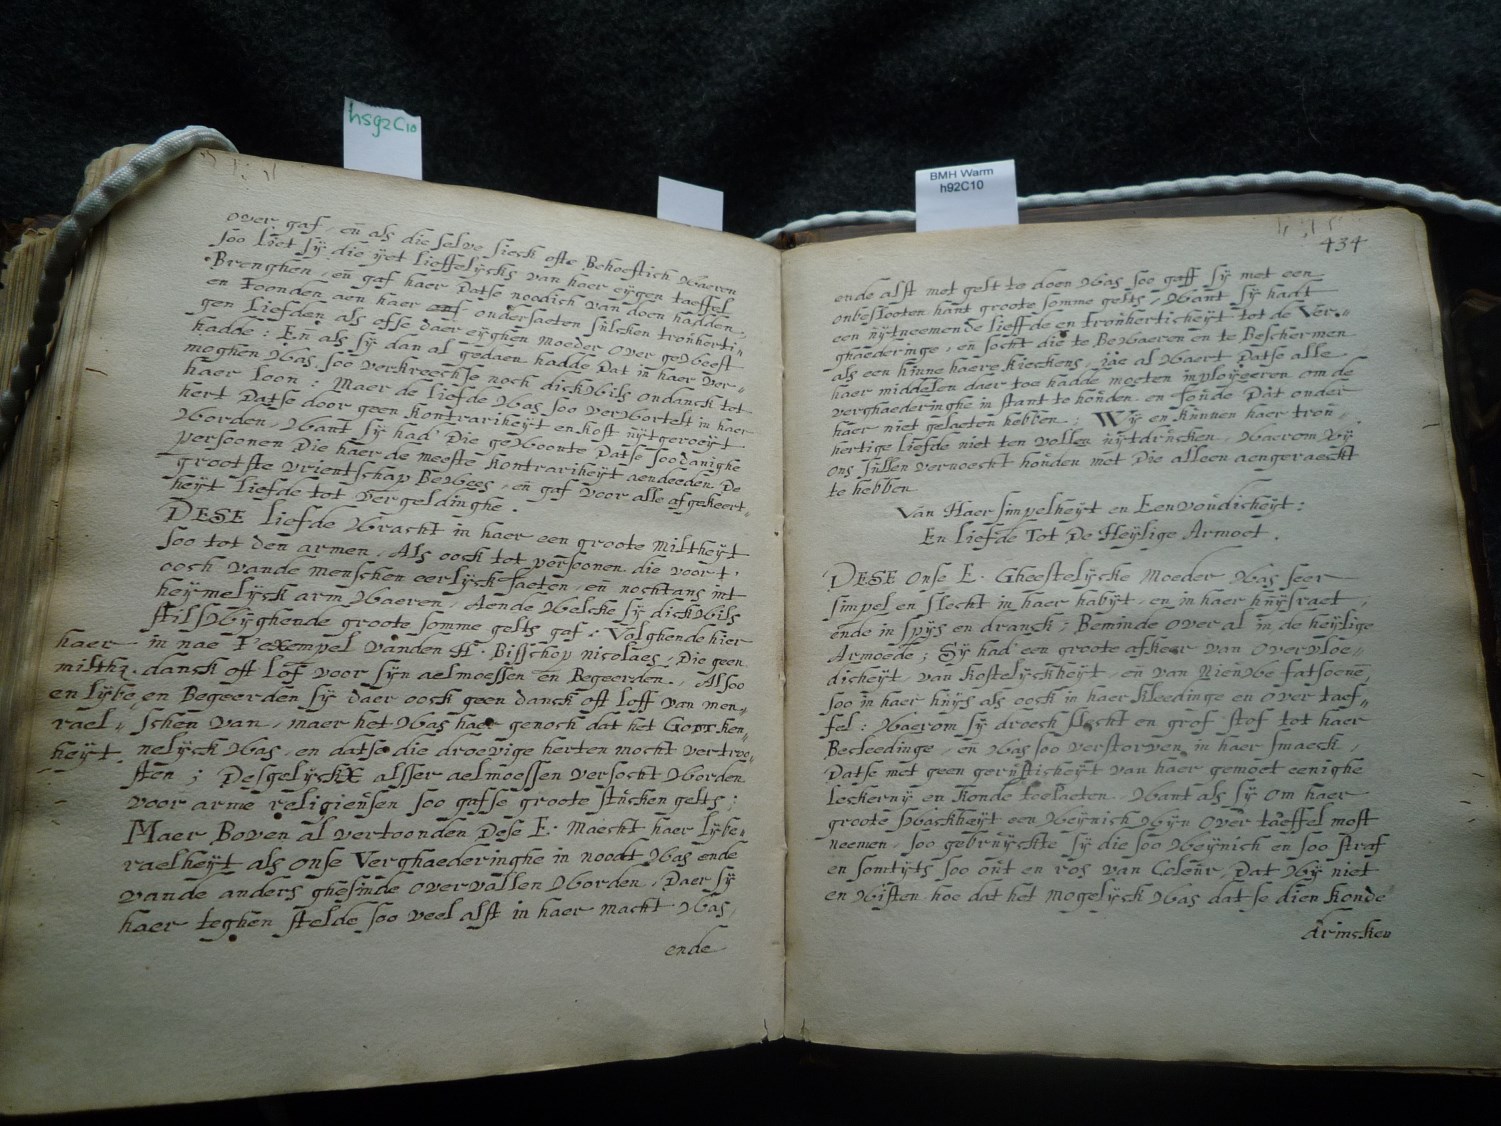 hs92C10
BMH Warm
h92C10
over gaf, en̄ als die selve sieck ofte Behoeftich Waeren
soo liet sÿ die ÿet lieffelÿcks van haer eÿgen taeffel
Brenghen, en̄ gaf haer Datse noodich van doen hadden,
en Toonden aen haer ondersaeten sulcken troǔherti-
gen Liefden als ofse daer eÿghen Moeder over geWeest
hadde: En̄ als sÿ dan al gedaen hadde Dat in haer Ver-
moghen Was, soo verkreechse noch dickWils ondanck tot
haer loon: Maer de liefde Was soo verWortelt in haer
hert Datse door geen kontrarikeÿt en kost ǔÿtgeroeÿt
Worden, Want sÿ had' Die geWoonte Datse soodanighe
Persoonen Die haer de meeste kontrarikeÿt aendeeden De
grootste vrientschap BeWees, en̄ gaf voor alle afgekeert-
heÿt liefde tot vergeldinghe.
DESE liefde Wracht in haer een groote Miltheÿt
soo tot den armen, Als oock tot persoonen die voort
oock vande menschen eerlÿck saeten, en̄ nochtans int
heÿmelÿck arm Waeren, Aende Welcke sÿ dickWils
stilsWÿghende groote somme gelts gaf: Volghende hier
in nae T'exempel vanden H. Bisschop nicolaes, Die geen
danck oft lof voor sÿn aelmoessen en Begeerden. Alsoo
en Begeerden sÿ daer oock geen danck oft loff van men-
schen van, maer het Was haer genoch dat het Godt ken-
nelÿck Was, en datse die droevige herten mocht vertroo-
sten; Desgelÿckx alsser aelmoessen versocht Worden
voor arme religieǔsen soo gafse groote stǔcken gelts;
Maer Boven al vertoonden Dese E. Maecht haer lÿbe-
raelheÿt als onse Verghaederinghe in noodt Was ende
vande anders ghesinde overvallen Worden, Daer sÿ
haer teghen stelde soo veel alst in haer macht Was,
ende
haer
milth.
en lÿbe
rael-
heÿt.
434
ende alst met gelt te doen Was soo gaff sÿ met een
onbeslooten hant groote somme gelts, Want sÿ hadt
een ǔÿtneemende lieffde en troǔherticheÿt tot de Ver-
ghaederinge, en̄ socht die te BeWaeren en te Beschermen
als een hinne haere kieckens, jae al Waert Datse alle
haer middelen daer toe hadde moeten inploÿeeren om de
verghaederinghe in stant te hoǔden, en soǔde Dat onder
haer niet gelaeten hebben: Wÿ en kǔnnen haer troǔ-
hertige liefde niet ten vollen ǔÿtdrǔcken, Waerom Wÿ
ons sǔllen vernoecht hoǔden met Die alleen aengeraeckt
te hebben
Van Haer simpelheÿt en Eenvoǔdicheÿt:
En liefde Tot De Heÿlige Armoet.
DESE Onse E. Gheestelÿcke Moeder Was seer
simpel en slecht in haer habÿt, en in haer hǔÿsraet,
ende in spÿs en dranck; Beminde over al in de heÿlige
Armoede; Sÿ had een groote afkeer van overvloe-
dicheÿt, van kostelÿckheÿt, en̄ van nieǔWe fatsoene,
soo in haer hǔÿs als oock in haer kleedinge en over taef-
fel: Waerom sÿ droech slecht en grof stof tot haer
Becleedinge, en̄ Was soo verstorven in haer smaeck,
Datse met geen gerǔsticheÿt van haer gemoet eenighe
leckernÿ en konde toelaeten. Want als sÿ om haer
groote sWackheÿt een Weÿnich Wÿn over taeffel most
neemen, soo gebrǔÿckte sÿ die soo Weÿnich en soo straf
en somtÿts soo oǔt en ros van Coleǔr, Dat Wÿ niet
en Wisten hoe dat het mogelÿck Was datse dien konde
drincken